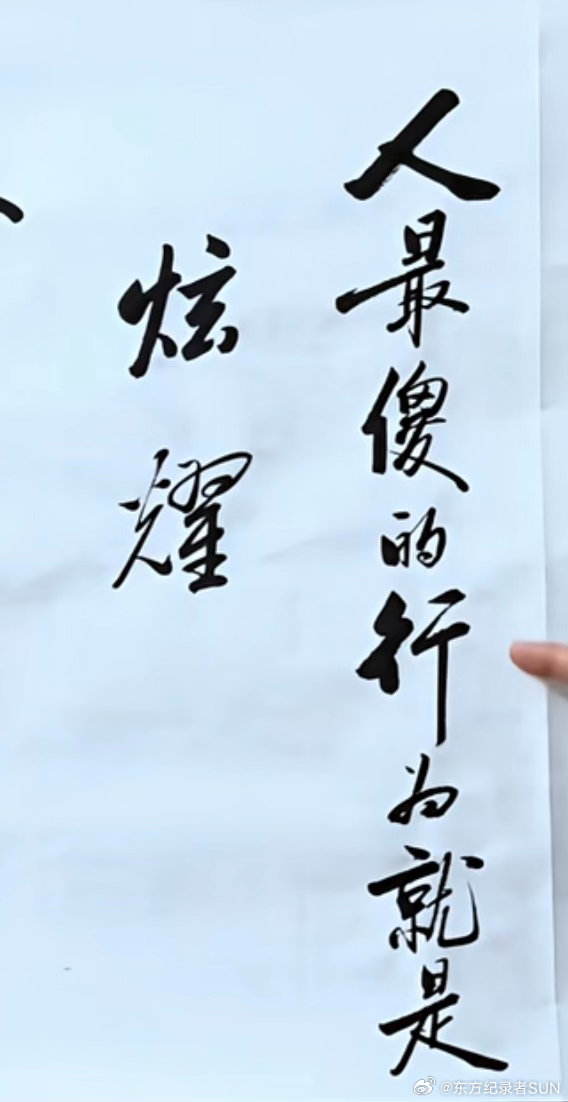 人最傻的行为就是
炫耀
@东方纪录者SUN